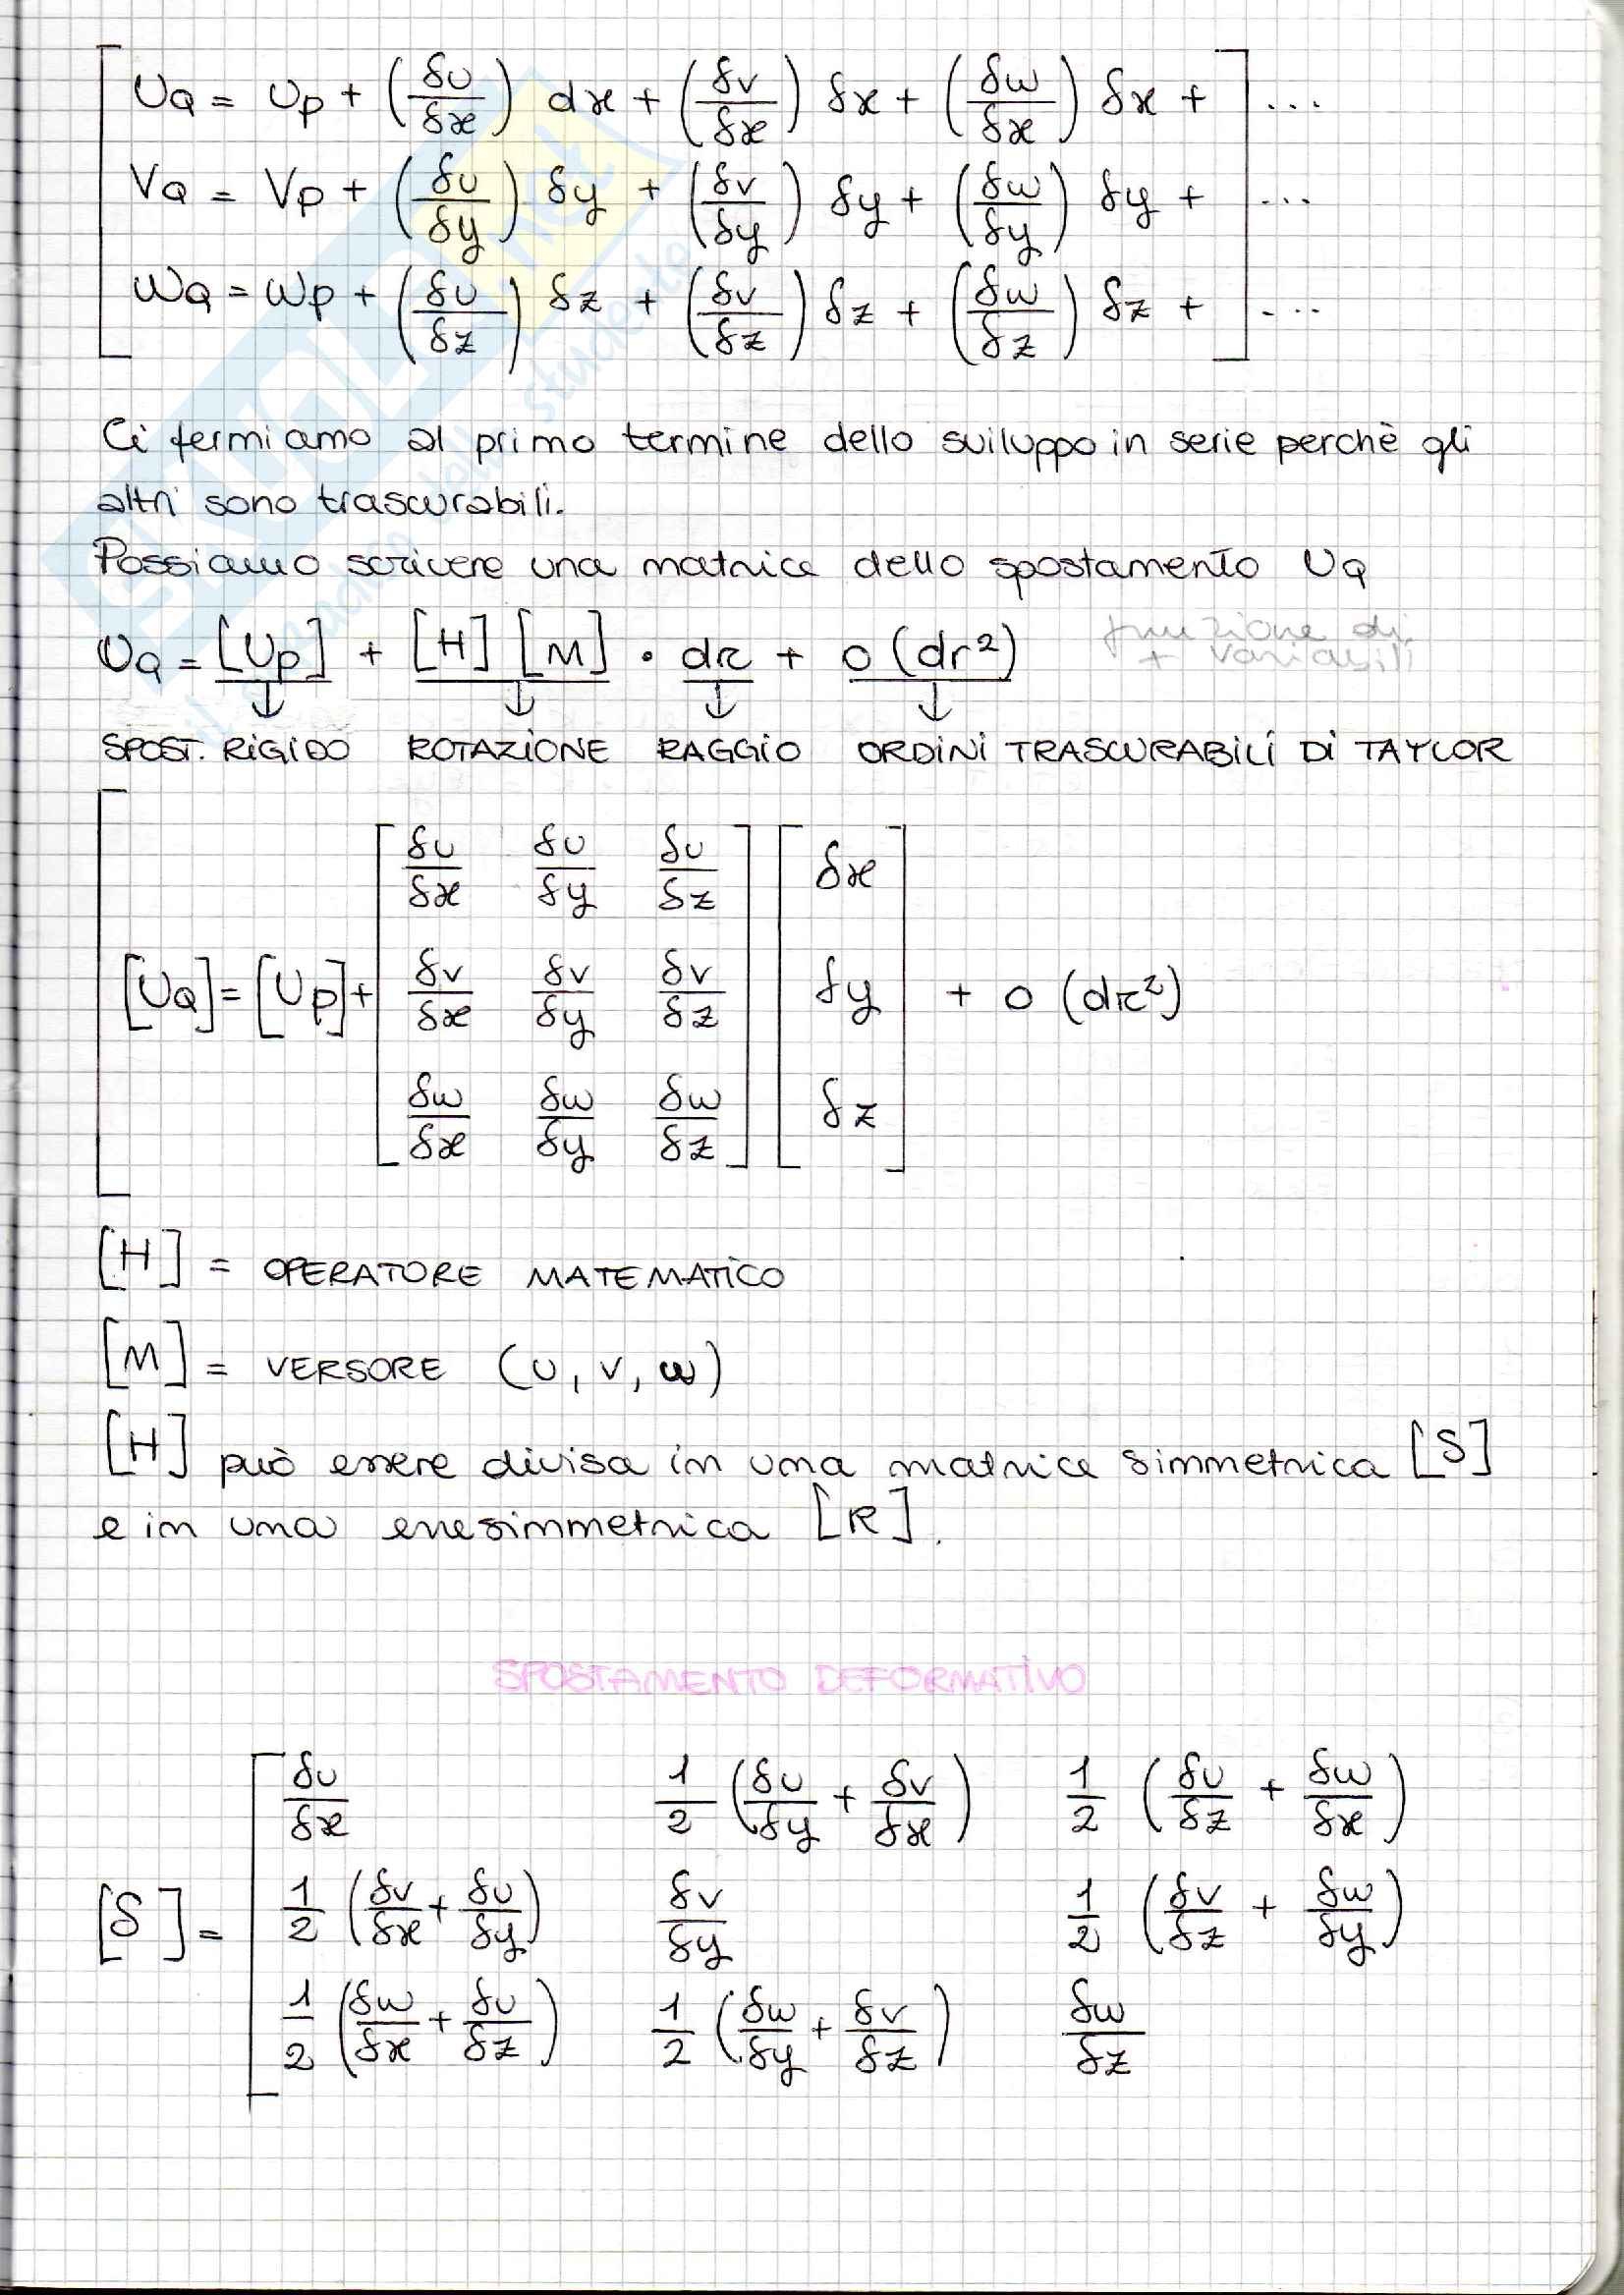 UQ = UP + (δu/δx) dx + (δv/δx) δx + (δw/δx) δx + ...
VQ = VP + (δu/δy) δy + (δv/δy) δy + (δw/δy) δy + ...
WQ = WP + (δu/δz) δz + (δv/δz) δz + (δw/δz) δz + ...
Ci fermiamo al primo termine dello sviluppo in serie perchè gli
altri sono trascurabili.
Possiamo scrivere una matrice dello spostamento UQ
UQ = [UP] + [H] [M] · dr + o (dr²) funzione di
+ variabili
↓ ↓ ↓ ↓
SPOST. RIGIDO ROTAZIONE RAGGIO ORDINI TRASCURABILI DI TAYLOR
δu/δx δu/δy δu/δz δx
[UQ] = [UP] + δv/δx δv/δy δv/δz δy + o (dr²)
δw/δx δw/δy δw/δz δz
[H] = OPERATORE MATEMATICO
[M] = VERSORE (u, v, w)
[H] può essere divisa in una matrice simmetrica [S]
e in una emesimmetrica [R].
SPOSTAMENTO DEFORMATIVO
δu/δx 1/2 (δu/δy + δv/δx) 1/2 (δu/δz + δw/δx)
[S] = 1/2 (δv/δx + δu/δy) δv/δy 1/2 (δv/δz + δw/δy)
1/2 (δw/δx + δu/δz) 1/2 (δw/δy + δv/δz) δw/δz